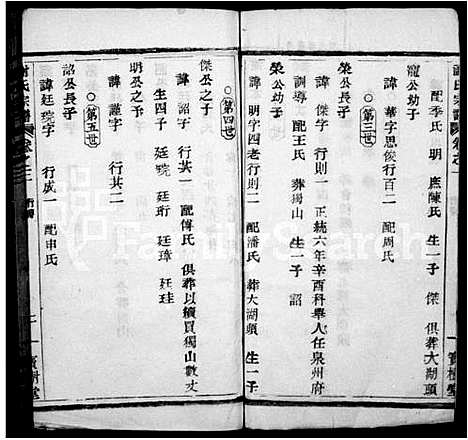 謝氏宗譜 卷之一
配季氏 明 庶陳氏 生一子 傑 俱葬大湖頭
寵公幼子
諱華字思俊行百二 配周氏
○第三世
榮公長子
諱傑字 行則一 正統六年辛酉科舉人任泉州府
訓導 配王氏 葬獨山 生一子 詔
榮公幼子
諱明字四老行則二 配潘氏 葬大湖頭 生一子
○第四世
傑公之子
諱詔字 行英一 配傅氏 俱葬以續買獨山數丈
生四子 廷琬 廷珩 廷璋 廷珪
明公之子
諱瑾字 行英二
○第五世
詔公長子
諱廷琬字 行成一 配申氏
氏宗譜 卷之一
寶樹堂
FamilySearch